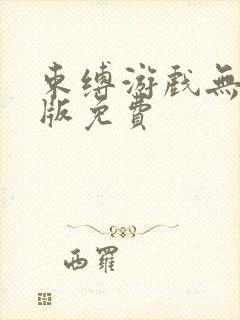 束缚游戏無
版免費
西羅